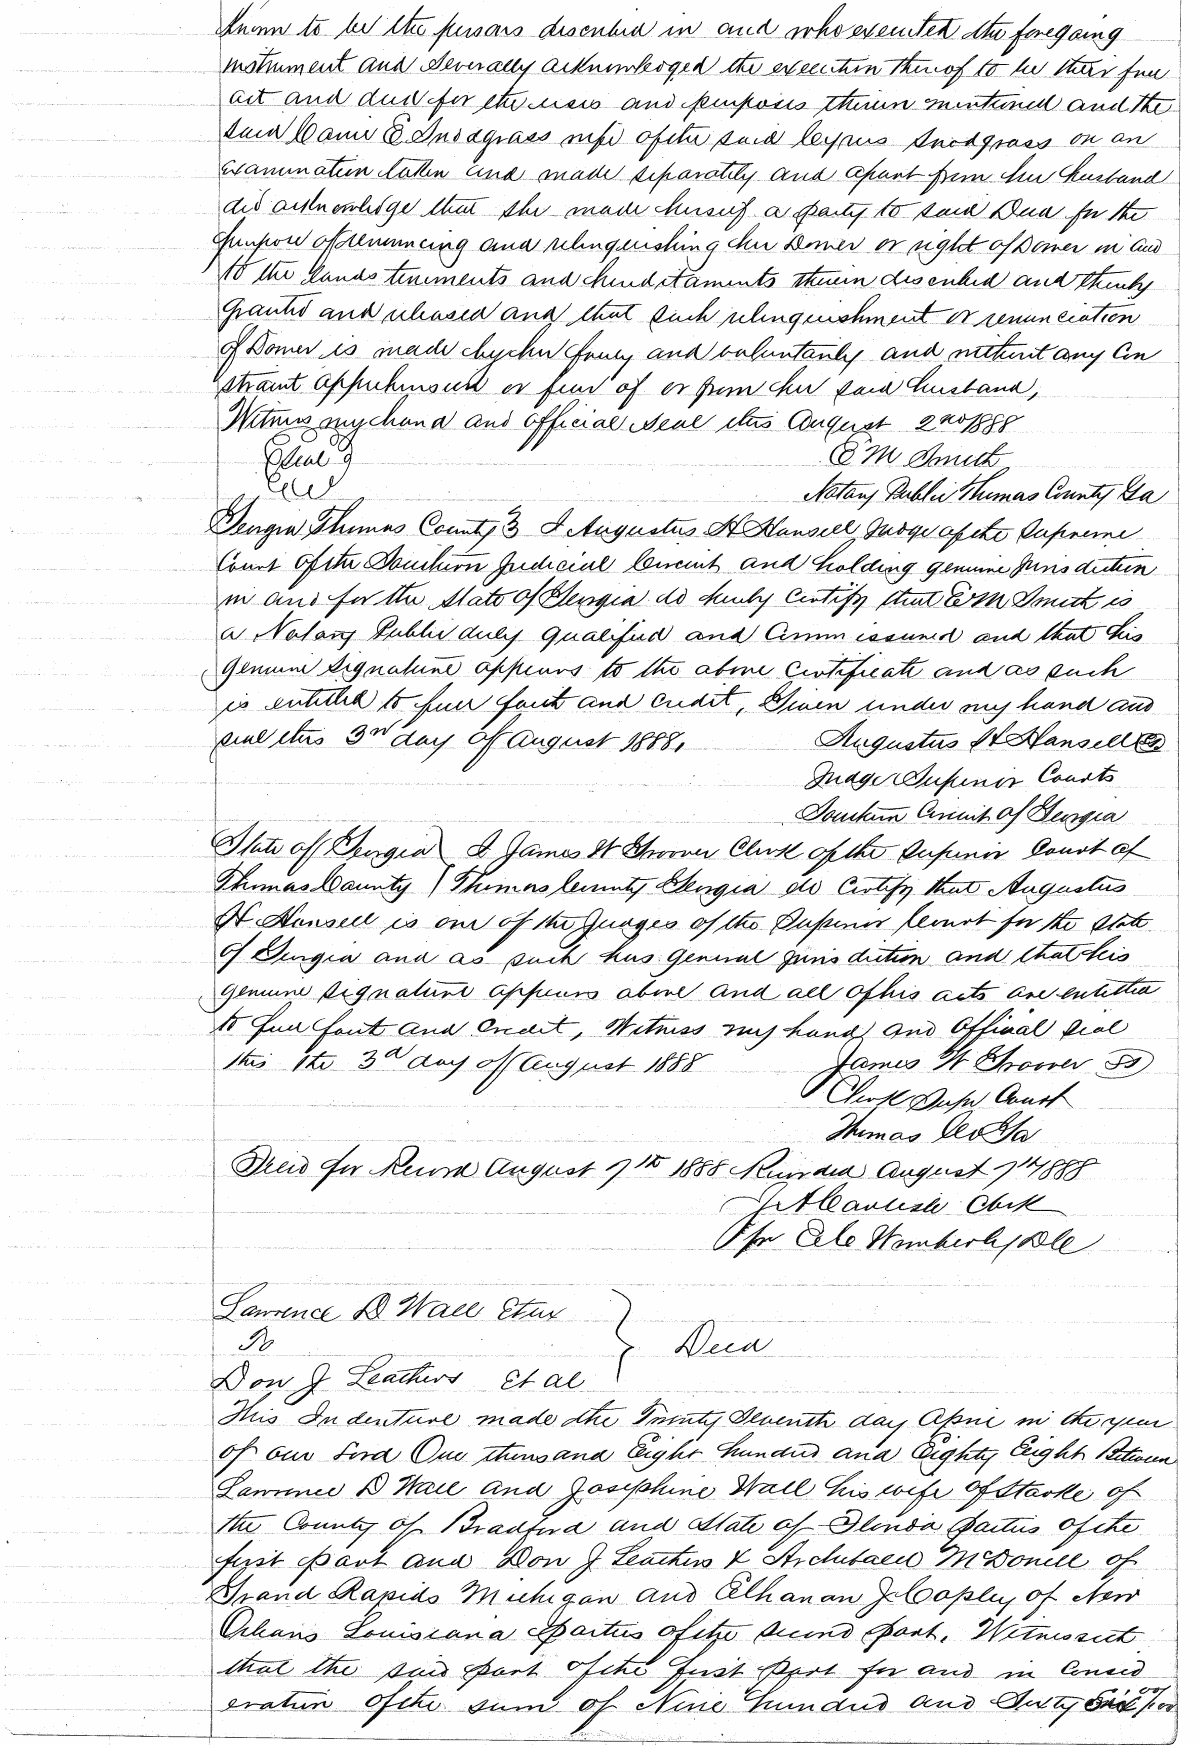 known to be the persons described in and who executed the foregoing
instrument and severally acknowledged the execution thereof to be their free
act and deed for the uses and purposes therein mentioned and the
said Carrie E Snodgrass wife of the said Cyrus Snodgrass on an
examination taken and made separately and apart from her husband
did acknowledge that she made herself a party to said Deed for the
purpose of renouncing and relinquishing her Dower or right of Dower in and
to the lands tenements and hereditaments therein described and thereby
granted and released and that such relinquishment or renunciation
of Dower is made by her freely and voluntarily and without any Con
straint apprehension or fear of or from her said husband,
Witness my hand and official seal this August 2nd 1888
Seal
E M Smith
Notary Public Thomas County Ga
Georgia Thomas County } I Augustus H Hansell Judge of the Supreme
Court of the Southern Judicial Circuit and holding genuine jurisdiction
in and for the State of Georgia do hereby Certify that E M Smith is
a Notary Public duly qualified and Commissioned and that his
genuine signature appears to the above Certificate and as such
is entitled to full faith and credit, Given under my hand and
seal this 3rd day of August 1888.
Augustus H Hansell
Judge Superior Courts
Southern Circuit of Georgia
State of Georgia ) I James W Groover Clerk of the Superior Court of
Thomas County ) Thomas County Georgia do Certify that Augustus
H Hansell is one of the Judges of the Superior Court for the State
of Georgia and as such has general jurisdiction and that his
genuine signature appears above and all of his acts are entitled
to full faith and Credit, Witness my hand and Official seal
this the 3d day of August 1888
James W Groover
Clerk Supr Court
Thomas Co Ga
Filed for Record August 7th 1888 Recorded August 7th 1888
Clerk
Per Wimberly DC
Lawrence D Wall Et ux
To } Deed
Don J Leathers Et al
This Indenture made the Twenty Seventh day April in the year
of our Lord One thousand Eight hundred and Eighty Eight Between
Lawrence D Wall and Josephine Wall his wife of Starke of
the County of Bradford and State of Florida parties of the
first part and Don J Leathers & Archibald McDonell of
Grand Rapids Michigan and Elhanan J Copley of New
Orleans Louisiana parties of the second part, Witnesseth
that the said part of the first part for and in Consid
eration of the sum of Nine hundred and Sixty Six